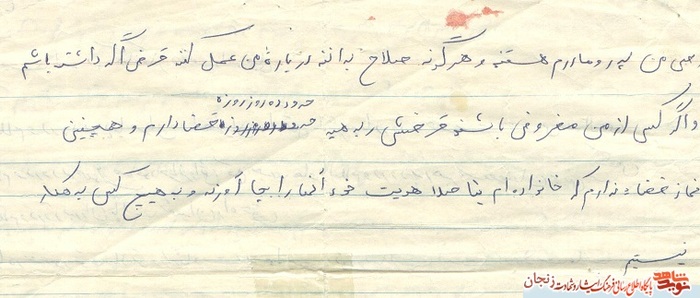 صی من پدر و مادرم هستند و هرگونه صلاح بدانند درباره من عمل کنند قرضی اگر داشته باشم
حدود ده روز روزه
و اگر کسی از من مقروض باشد قرضش را بدهید قضا دارم و همچنین
نماز قضا ندارم که خانواده ام بنا صلاحدید خود آنها را بجا آورند و به هیچ کس بدهکار
نیستم
نوید شاهد
پایگاه اطلاع رسانی فرهنگ ایثار و شهادت زنجان